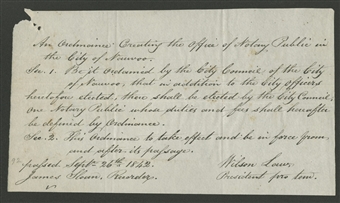 An Ordinance Creating the office of Notary Public in
the City of Nauvoo.
Sec. 1. Be it Ordained by the City Council of the City
of Nauvoo, that in addition to the City officers
heretofore elected, there shall be elected by the City Council,
one Notary Public whose duties and fees shall hereafter
be defined by Ordinance.
Sec. 2. This Ordinance to take effect and be in force from,
and after its passage.
passed. Sept. 26th 1842. Wilson Law.
James Sloan, Recorder. President pro tem.